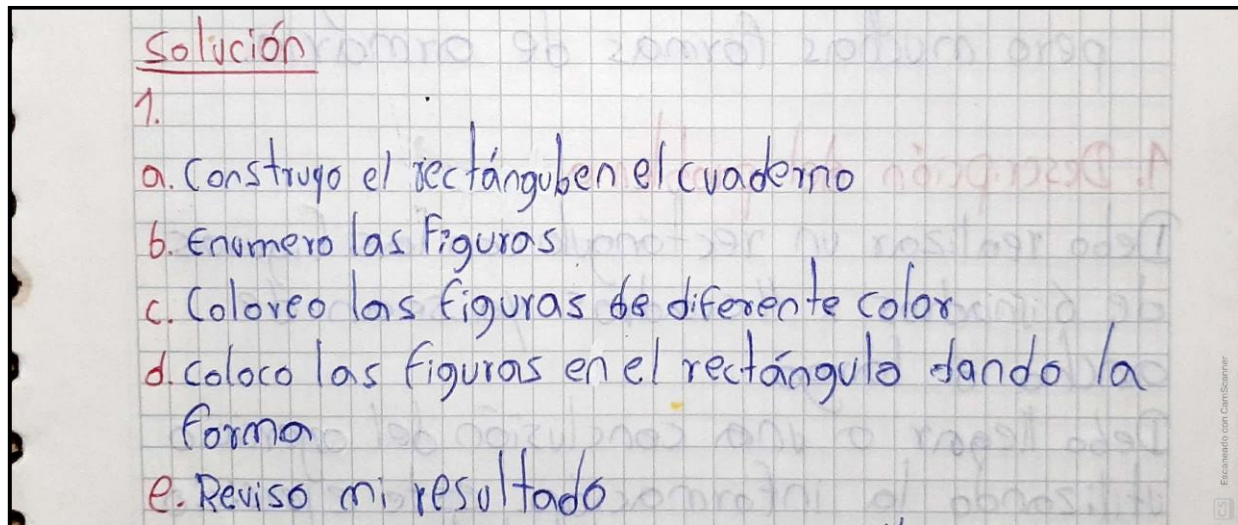 Solución
1.
a. Construyo el rectángulo en el cuaderno
b. Enumero las Figuras
c. Coloreo las figuras de diferente color
d. coloco las figuras en el rectángulo dando la
forma
e. Reviso mi resultado
Escaneado con CamScanner
CS